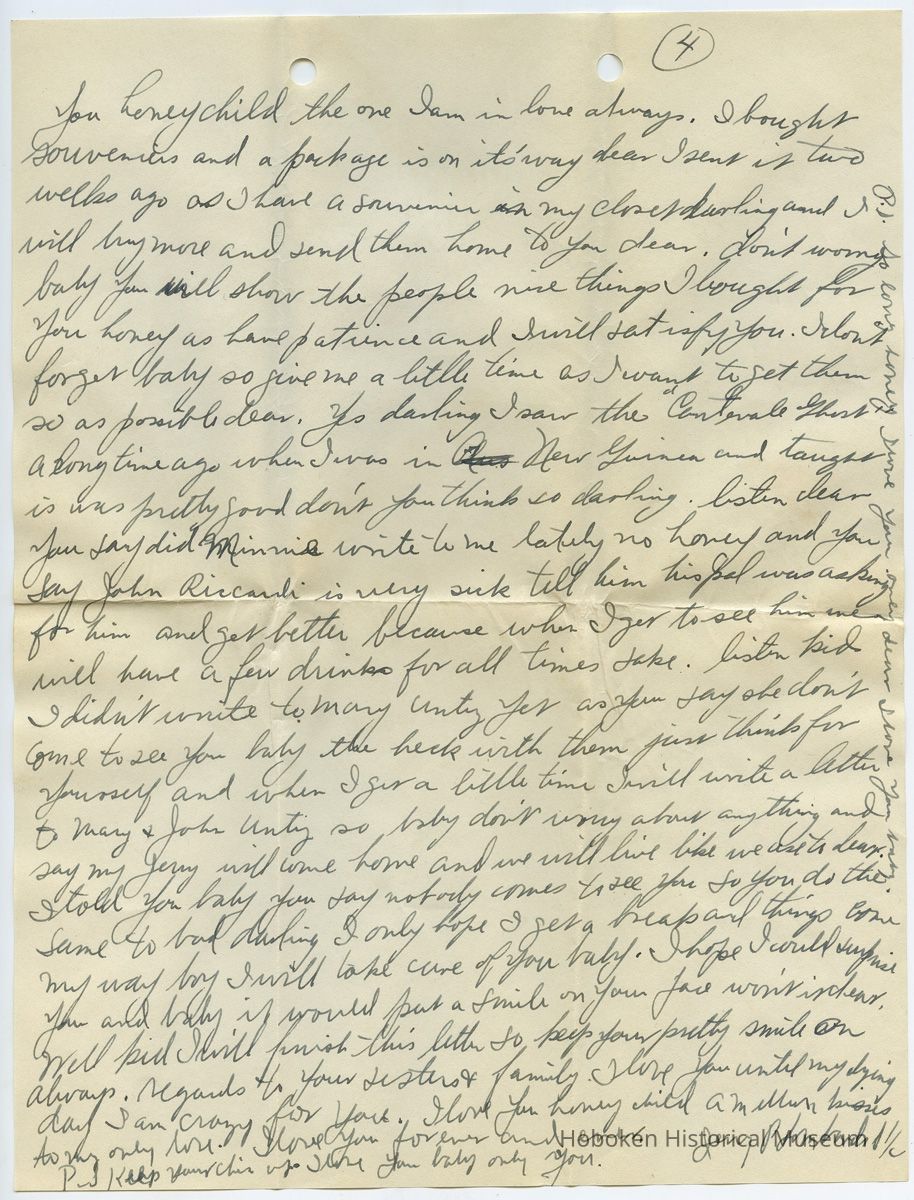 4
You honey child the one I am in love always. I bought
souveniers and a package is on it's way dear I sent it two
weeks ago as I have a souvenier in my closet darling and I
will buy more and send them home to you dear. don't worry
baby you will show the people nice things I bought for
you honey as have patience and I will satisfy you. I don't
forget baby so give me a little time as I want to get them
so as possible dear. Yes darling I saw the "Cantervale Ghost"
a long time ago when I was in New Guinea and taught
is was pretty good don't you think so darling. listen dear
you say did Minnie write to me lately no honey and you
say John Riccardi is very sick tell him his pal was asking
for him and get better because when I get to see him we
will have a few drinks for all times sake. listen kid
I didn't write to Mary Untig yet as you say she don't
come to see you baby the heck with them just thinks for
yourself and when I get a little time I will write a letter
to Mary & John Untig so, baby don't worry about anything and
say my Jerry will come home and we will live like we use to dear.
I told you baby you say nobody comes to see you so you do the
same to bad darling I only hope I get a break and things come
my way boy I will take care of you baby. I hope I could surprise
you and baby it would put a smile on your face won't it dear.
Well kid I will finish this letter so keep your pretty smile on
always. regards to your sisters & family. I love you until my dying
day I am crazy for you. I love you honey child a million kisses
to my only love. I love you forever and Jerry
P.S Keep your chin up I love you baby only you.
P.S. So long honey I love you only dear I love you baby.
Hoboken Historical Museum